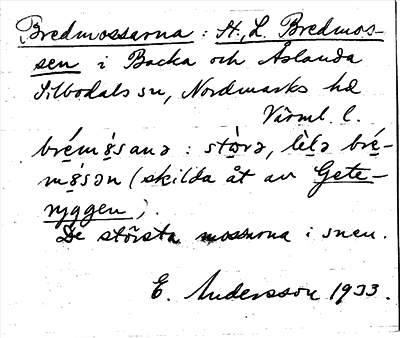 Bredmossarna: St., L. Bredmos-
sen i Backa och Åslanda
Silbodals sn, Nordmarks hd
Värml. l.
brém&sana : stòrə, lèlə bré-
m&sən (skilda åt av Gete-
ryggen).
De största mossarna i snen.
E. Andersson 1933.